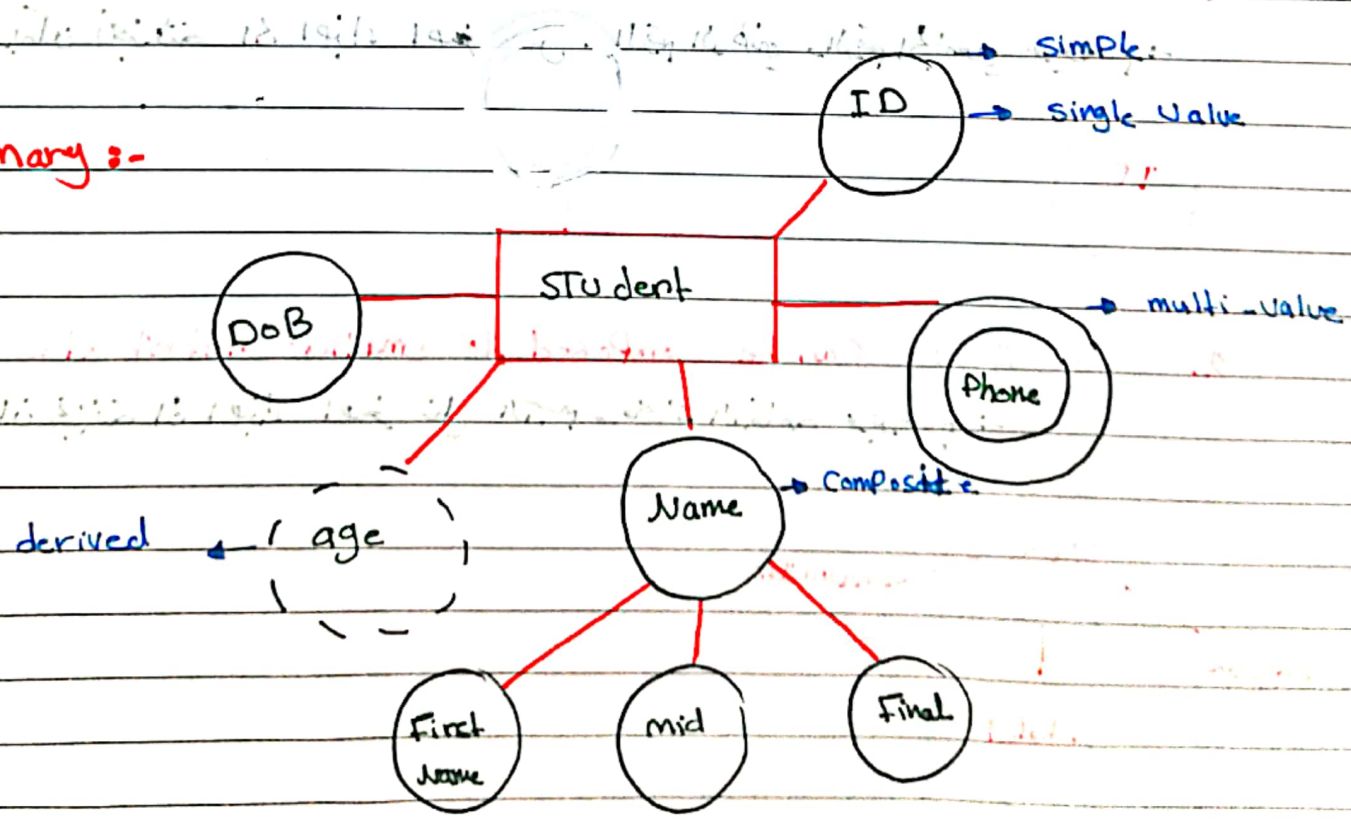 simple.
ID
single value
nary :-
STudent
DoB
multi-value
Phone
Name
composite
derived
age
First
Name
mid
Final